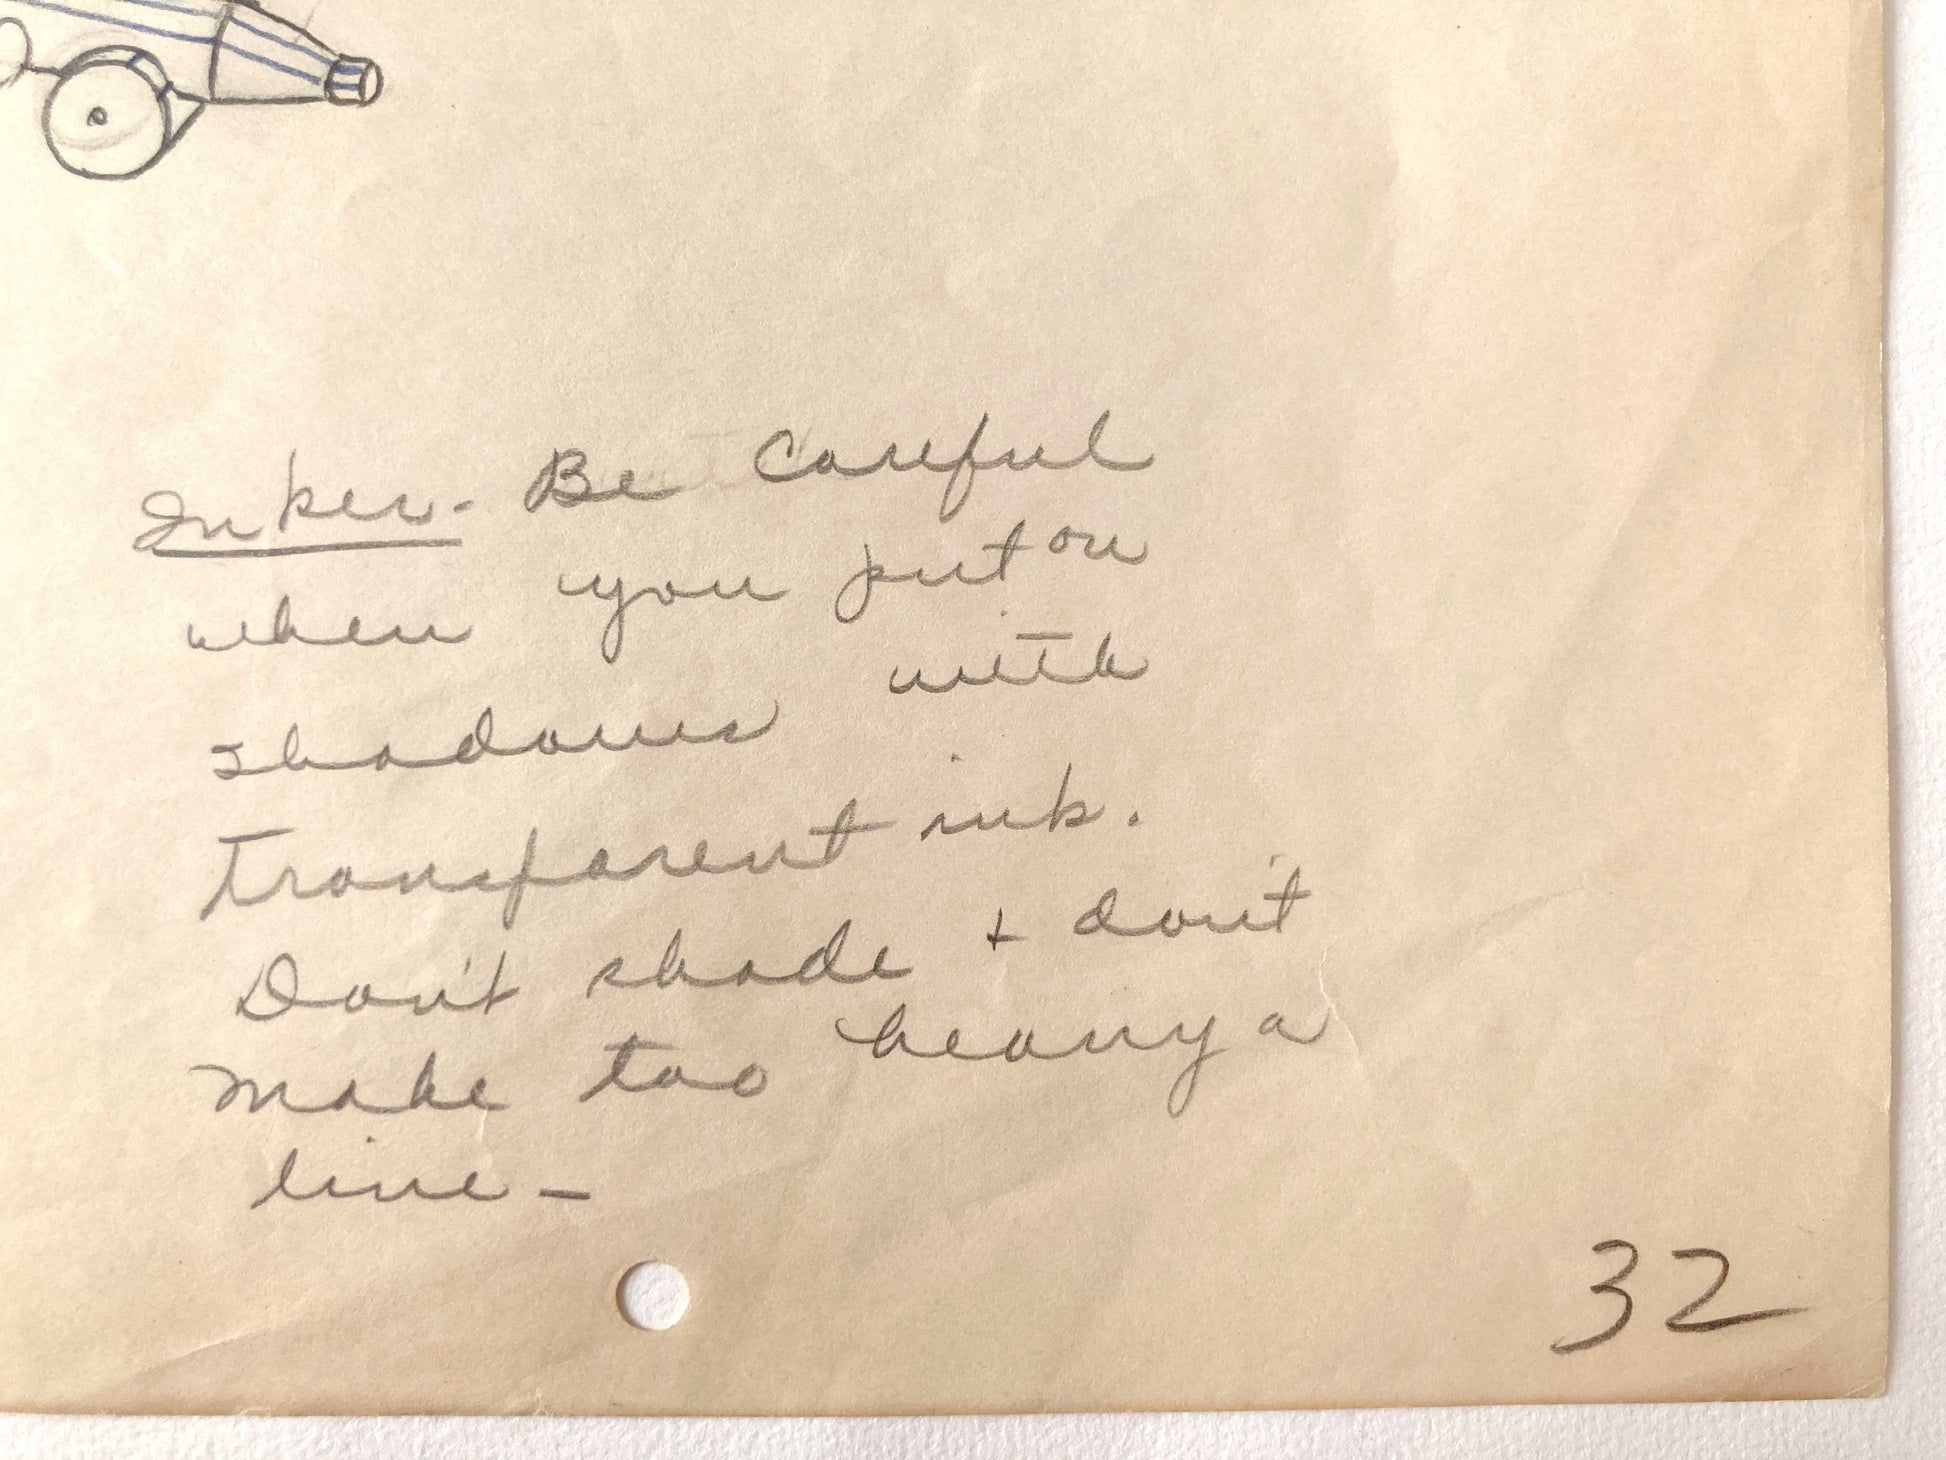 Inker - Be Careful
when you put on
shadows with
transparent ink.
Don't shade + don't
make too heavy a
line -
32